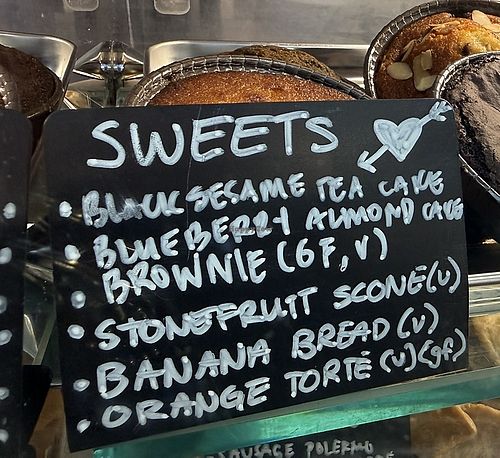 SWEETS
• BLACK SESAME TEA CAKE
• BLUEBERRY ALMOND CAKE
• BROWNIE (GF, V)
• STONEFRUIT SCONE (V)
• BANANA BREAD (V)
• ORANGE TORTE (V) (gf)
SAUSAGE POLERMO